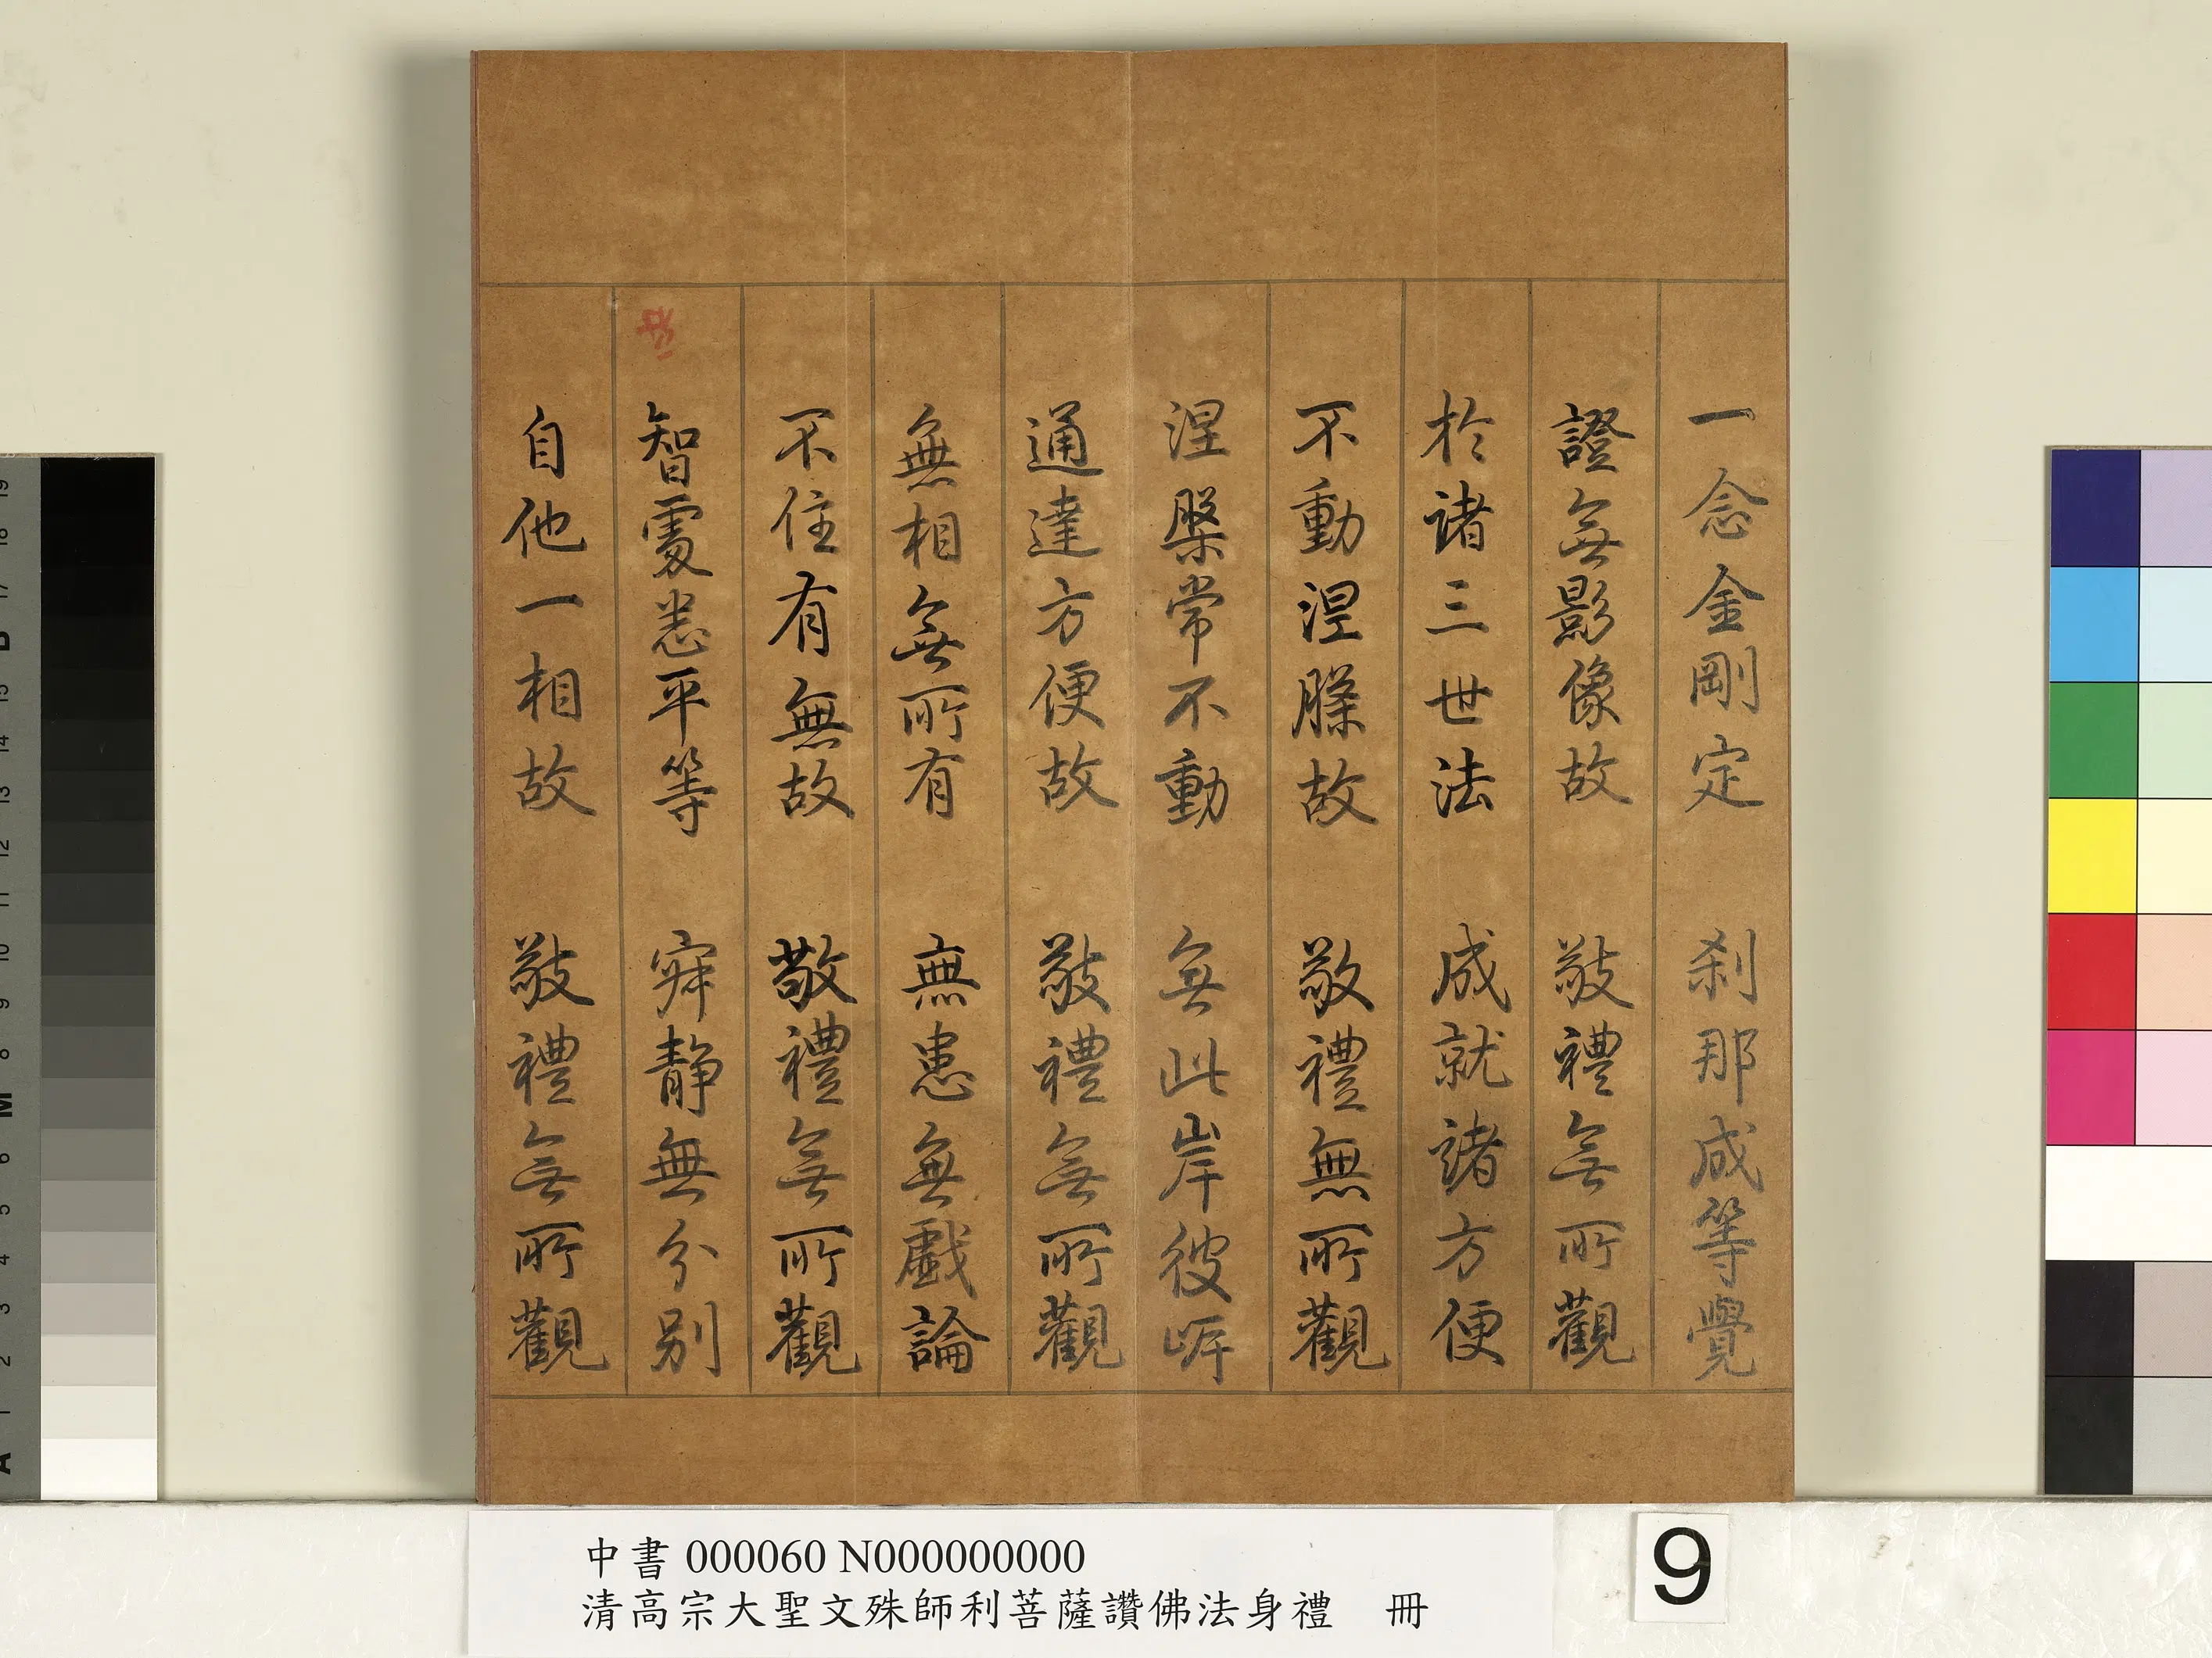 一念金剛定　刹那成等覺
證無影像故　敬禮無所觀
於諸三世法　成就諸方便
不動涅槃故　敬禮無所觀
涅槃常不動　無此岸彼岸
通達方便故　敬禮無所觀
無相無所有　無患無戲論
不住有無故　敬禮無所觀
智處悉平等　寂靜無分別
自他一相故　敬禮無所觀
中書 000060 N000000000
清高宗大聖文殊師利菩薩讚佛法身禮　冊
9
19
18
17
B
15
14
13
12
11
10
9
8
M
6
5
4
3
2
1
A